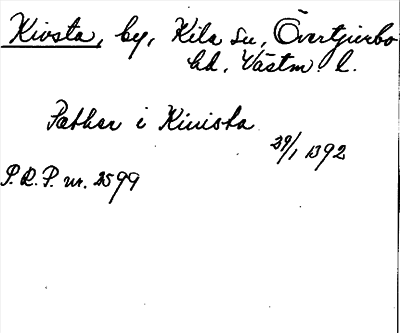 Kivsta, by, Kila sn, Övertjurbo
hd, Västm. l.
Pæthar i Kinista
29/1 1392
P.R.P. nr. 2599